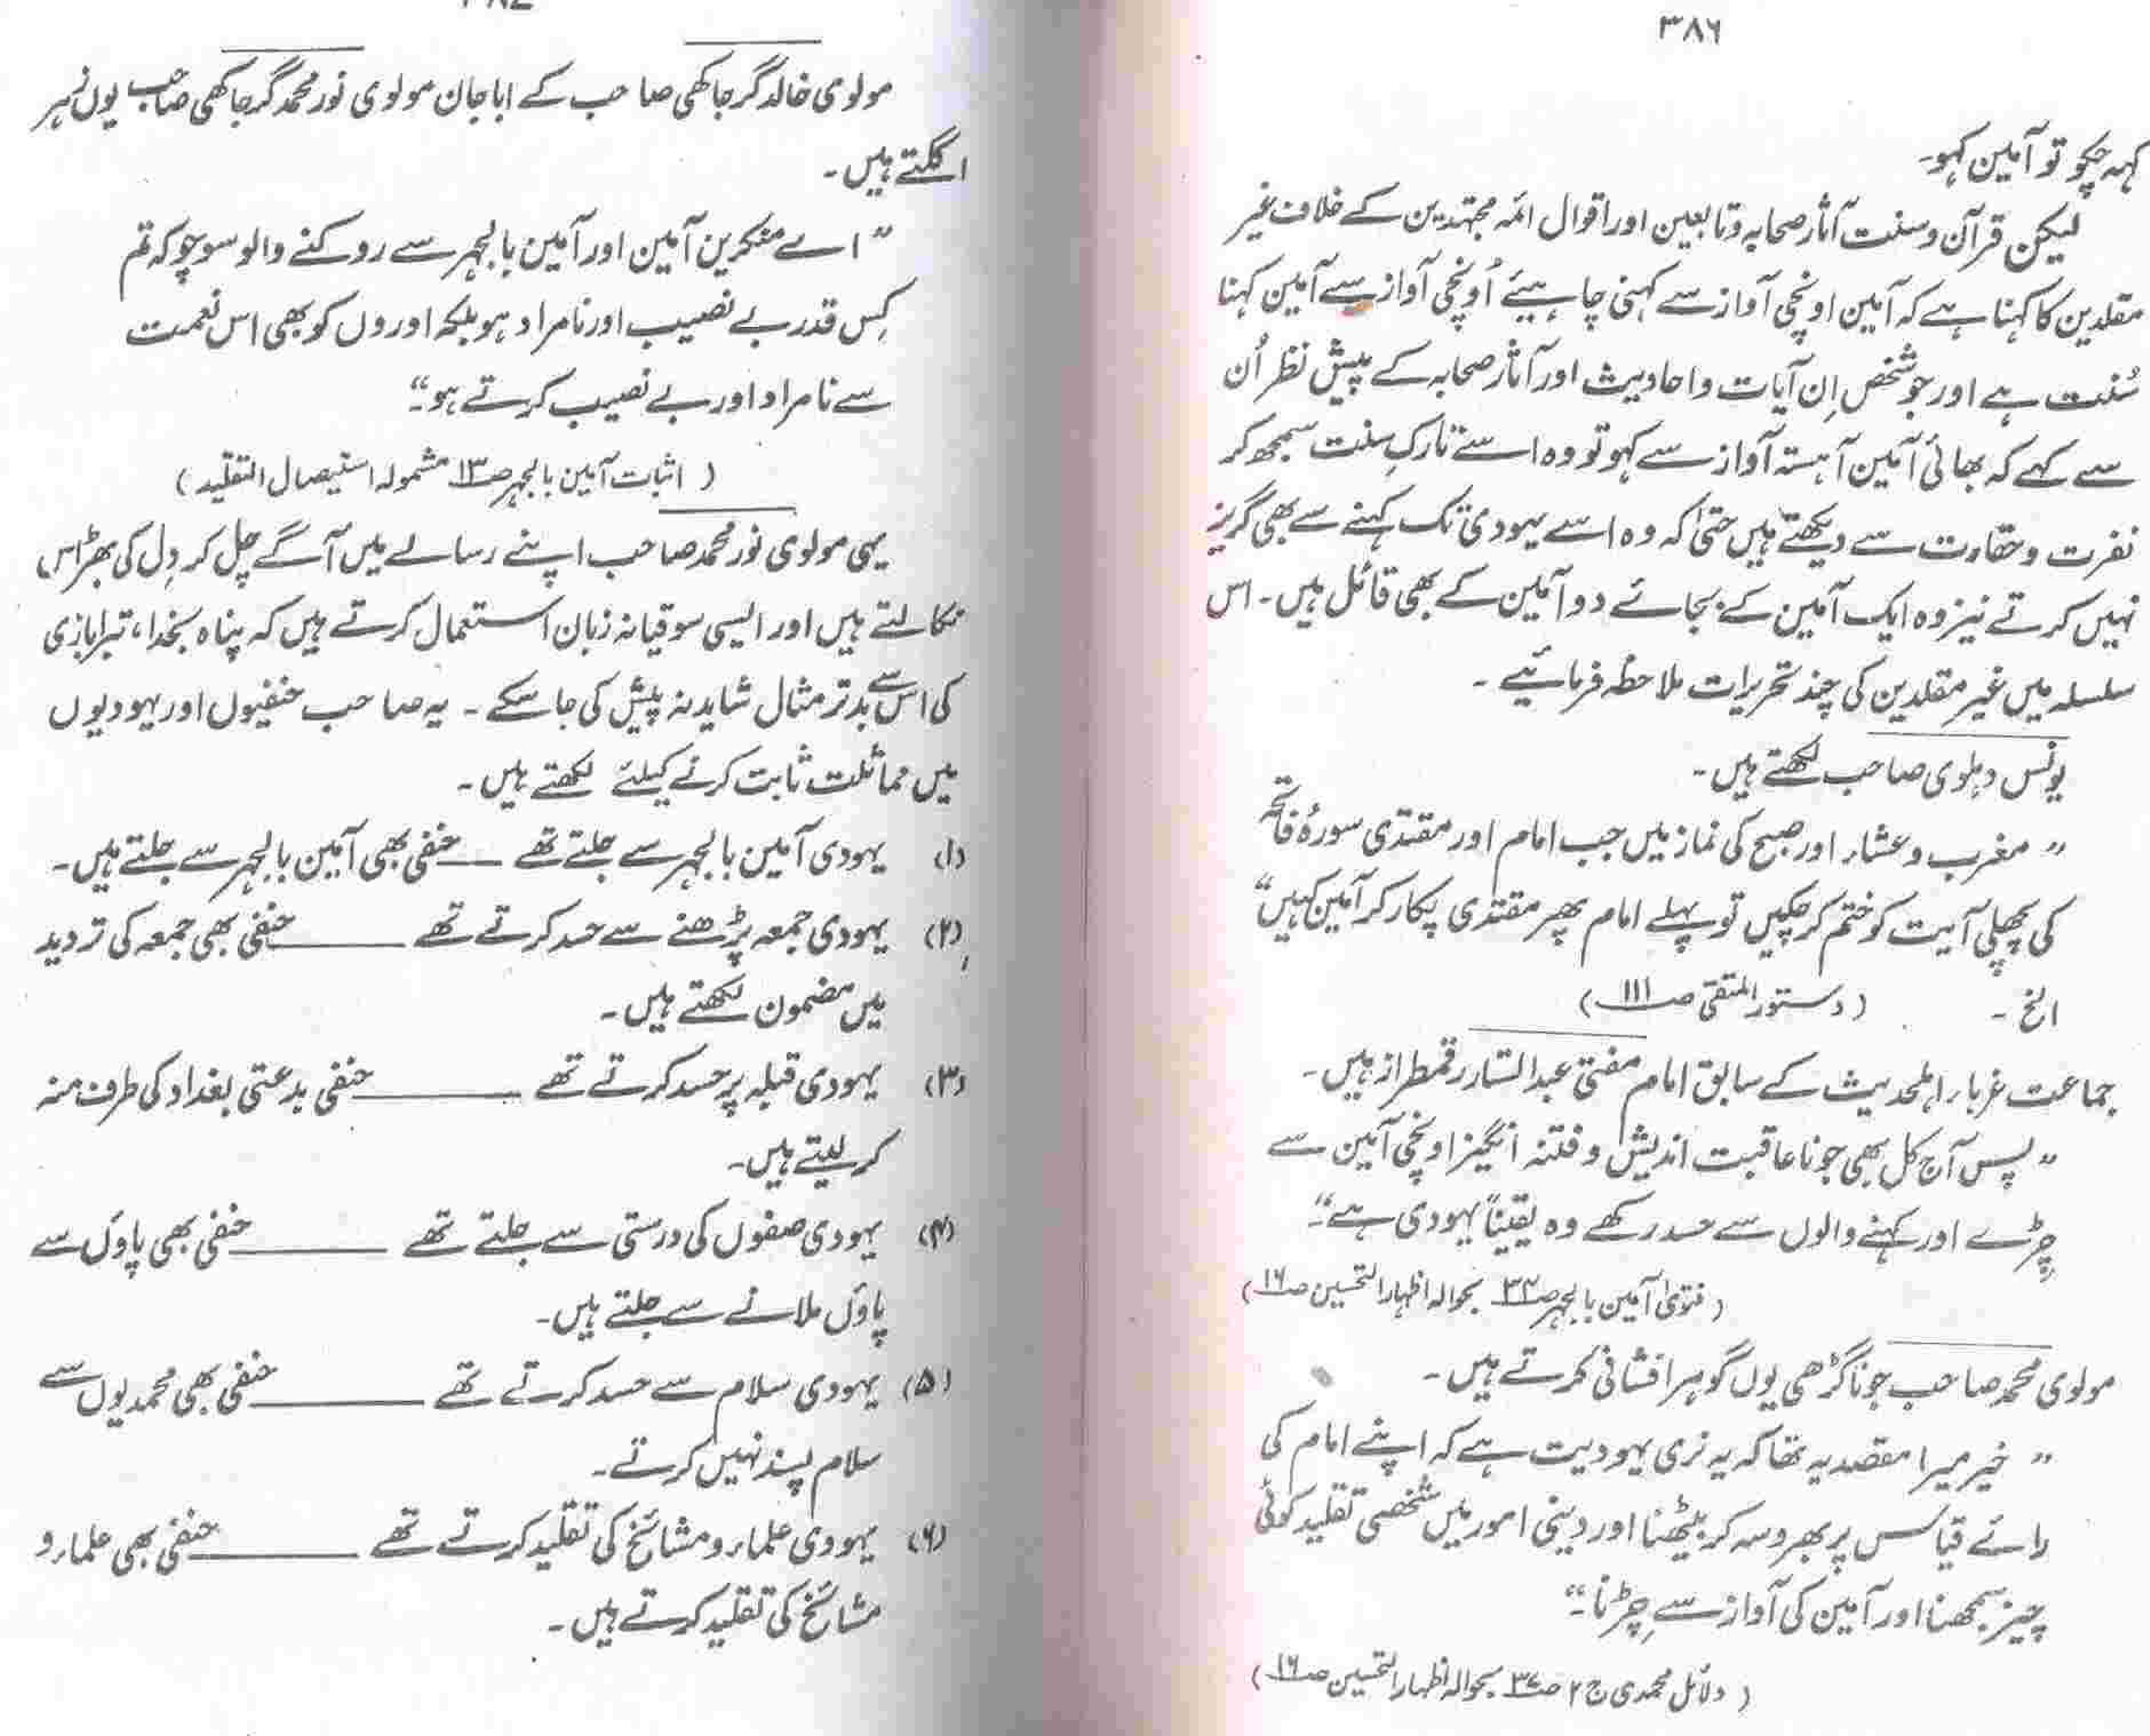 ۳۸۶
کہہ چکو تو آمین کہو۔
لیکن قرآن و سنت آثار صحابہ و تابعین اور اقوال ائمہ مجتہدین کے خلاف غیر
مقلدین کا کہنا ہے کہ آمین اونچی آواز سے کہنی چاہیئے اُونچی آواز سے آمین کہنا
سُنت ہے اور جو شخص اِن آیات و احادیث اور آثار صحابہ کے پیش نظر اُن
سے کہے کہ بھائی آمین آہستہ آواز سے کہو تو وہ اسے تارکِ سنت سمجھ کر
نفرت و حقارت سے دیکھتے ہیں حتیٰ کہ وہ اسے یہودی تک کہنے سے بھی گریز
نہیں کرتے نیز وہ ایک آمین کے بجائے دو آمین کے بھی قائل ہیں۔ اس
سلسلہ میں غیر مقلدین کی چند تحریرات ملاحظہ فرمائیے ۔
یونس دہلوی صاحب لکھتے ہیں۔
” مغرب و عشاء اور صبح کی نماز میں جب امام اور مقتدی سورۂ فاتحہ
کی پچھلی آیت کو ختم کر چکیں تو پہلے امام پھر مقتدی پکار کر آمین کہیں“
الخ ۔ (دستور المتقی صـ۱۱۱)
جماعت غرباء اہلحدیث کے سابق امام مفتی عبدالستار رقمطراز ہیں۔
” پس آج کل بھی جو ناعاقبت اندیش و فتنہ انگیز اونچی آمین سے
چِڑے اور کہنے والوں سے حسد رکھے وہ یقیناً یہودی ہے“۔
(فتویٰ آمین بالجہر صـ۳۳ بحوالہ اظہار التحسین صـ۱۶)
مولوی محمد صاحب جوناگڑھی یوں گوہر افشانی کرتے ہیں۔
” خیر میرا مقصد یہ تھا کہ یہ نری یہودیت ہے کہ اپنے امام کی
رائے قیاس پر بھروسہ کر بیٹھنا اور دینی امور میں شخصی تقلید کوئی
چیز سمجھنا اور آمین کی آواز سے چِڑنا“۔
(دلائل محمدی ج ۲ صـ۳۷ بحوالہ اظہار التحسین صـ۱۶)
مولوی خالد گرجاکھی صاحب کے اباجان مولوی نور محمد گرجاکھی صاحب یوں زہر
اگلتے ہیں ۔
” اے منکرین آمین اور آمین بالجہر سے روکنے والو سوچو کہ تم
کِس قدر بے نصیب اور نامراد ہو بلکہ اوروں کو بھی اس نعمت
سے نامراد اور بے نصیب کرتے ہو“۔
( اثبات آمین بالجہر صـ۱۳ مشمولہ استیصال التقلید )
یہی مولوی نور محمد صاحب اپنے رسالے میں آگے چل کر دِل کی بھڑاس
نکالتے ہیں اور ایسی سوقیانہ زبان استعمال کرتے ہیں کہ پناہ بخدا، تبرابازی
کی اس سے بدتر مثال شاید نہ پیش کی جا سکے ۔ یہ صاحب حنفیوں اور یہودیوں
میں مماثلت ثابت کرنے کیلئے لکھتے ہیں ۔
(۱) یہودی آمین بالجہر سے جلتے تھے ـــــ حنفی بھی آمین بالجہر سے جلتے ہیں۔
(۲) یہودی جمعہ پڑھنے سے حسد کرتے تھے ـــــ حنفی بھی جمعہ کی تردید
میں مضمون لکھتے ہیں ۔
(۳) یہودی قبلہ پر حسد کرتے تھے ـــــ حنفی بدعتی بغداد کی طرف منہ
کر لیتے ہیں۔
(۴) یہودی صفوں کی درستی سے جلتے تھے ـــــ حنفی بھی پاؤں سے
پاؤں ملانے سے جلتے ہیں۔
(۵) یہودی سلام سے حسد کرتے تھے ـــــ حنفی بھی محمدیوں سے
سلام پسند نہیں کرتے ۔
(۶) یہودی علماء و مشائخ کی تقلید کرتے تھے ـــــ حنفی بھی علماء و
مشائخ کی تقلید کرتے ہیں ۔